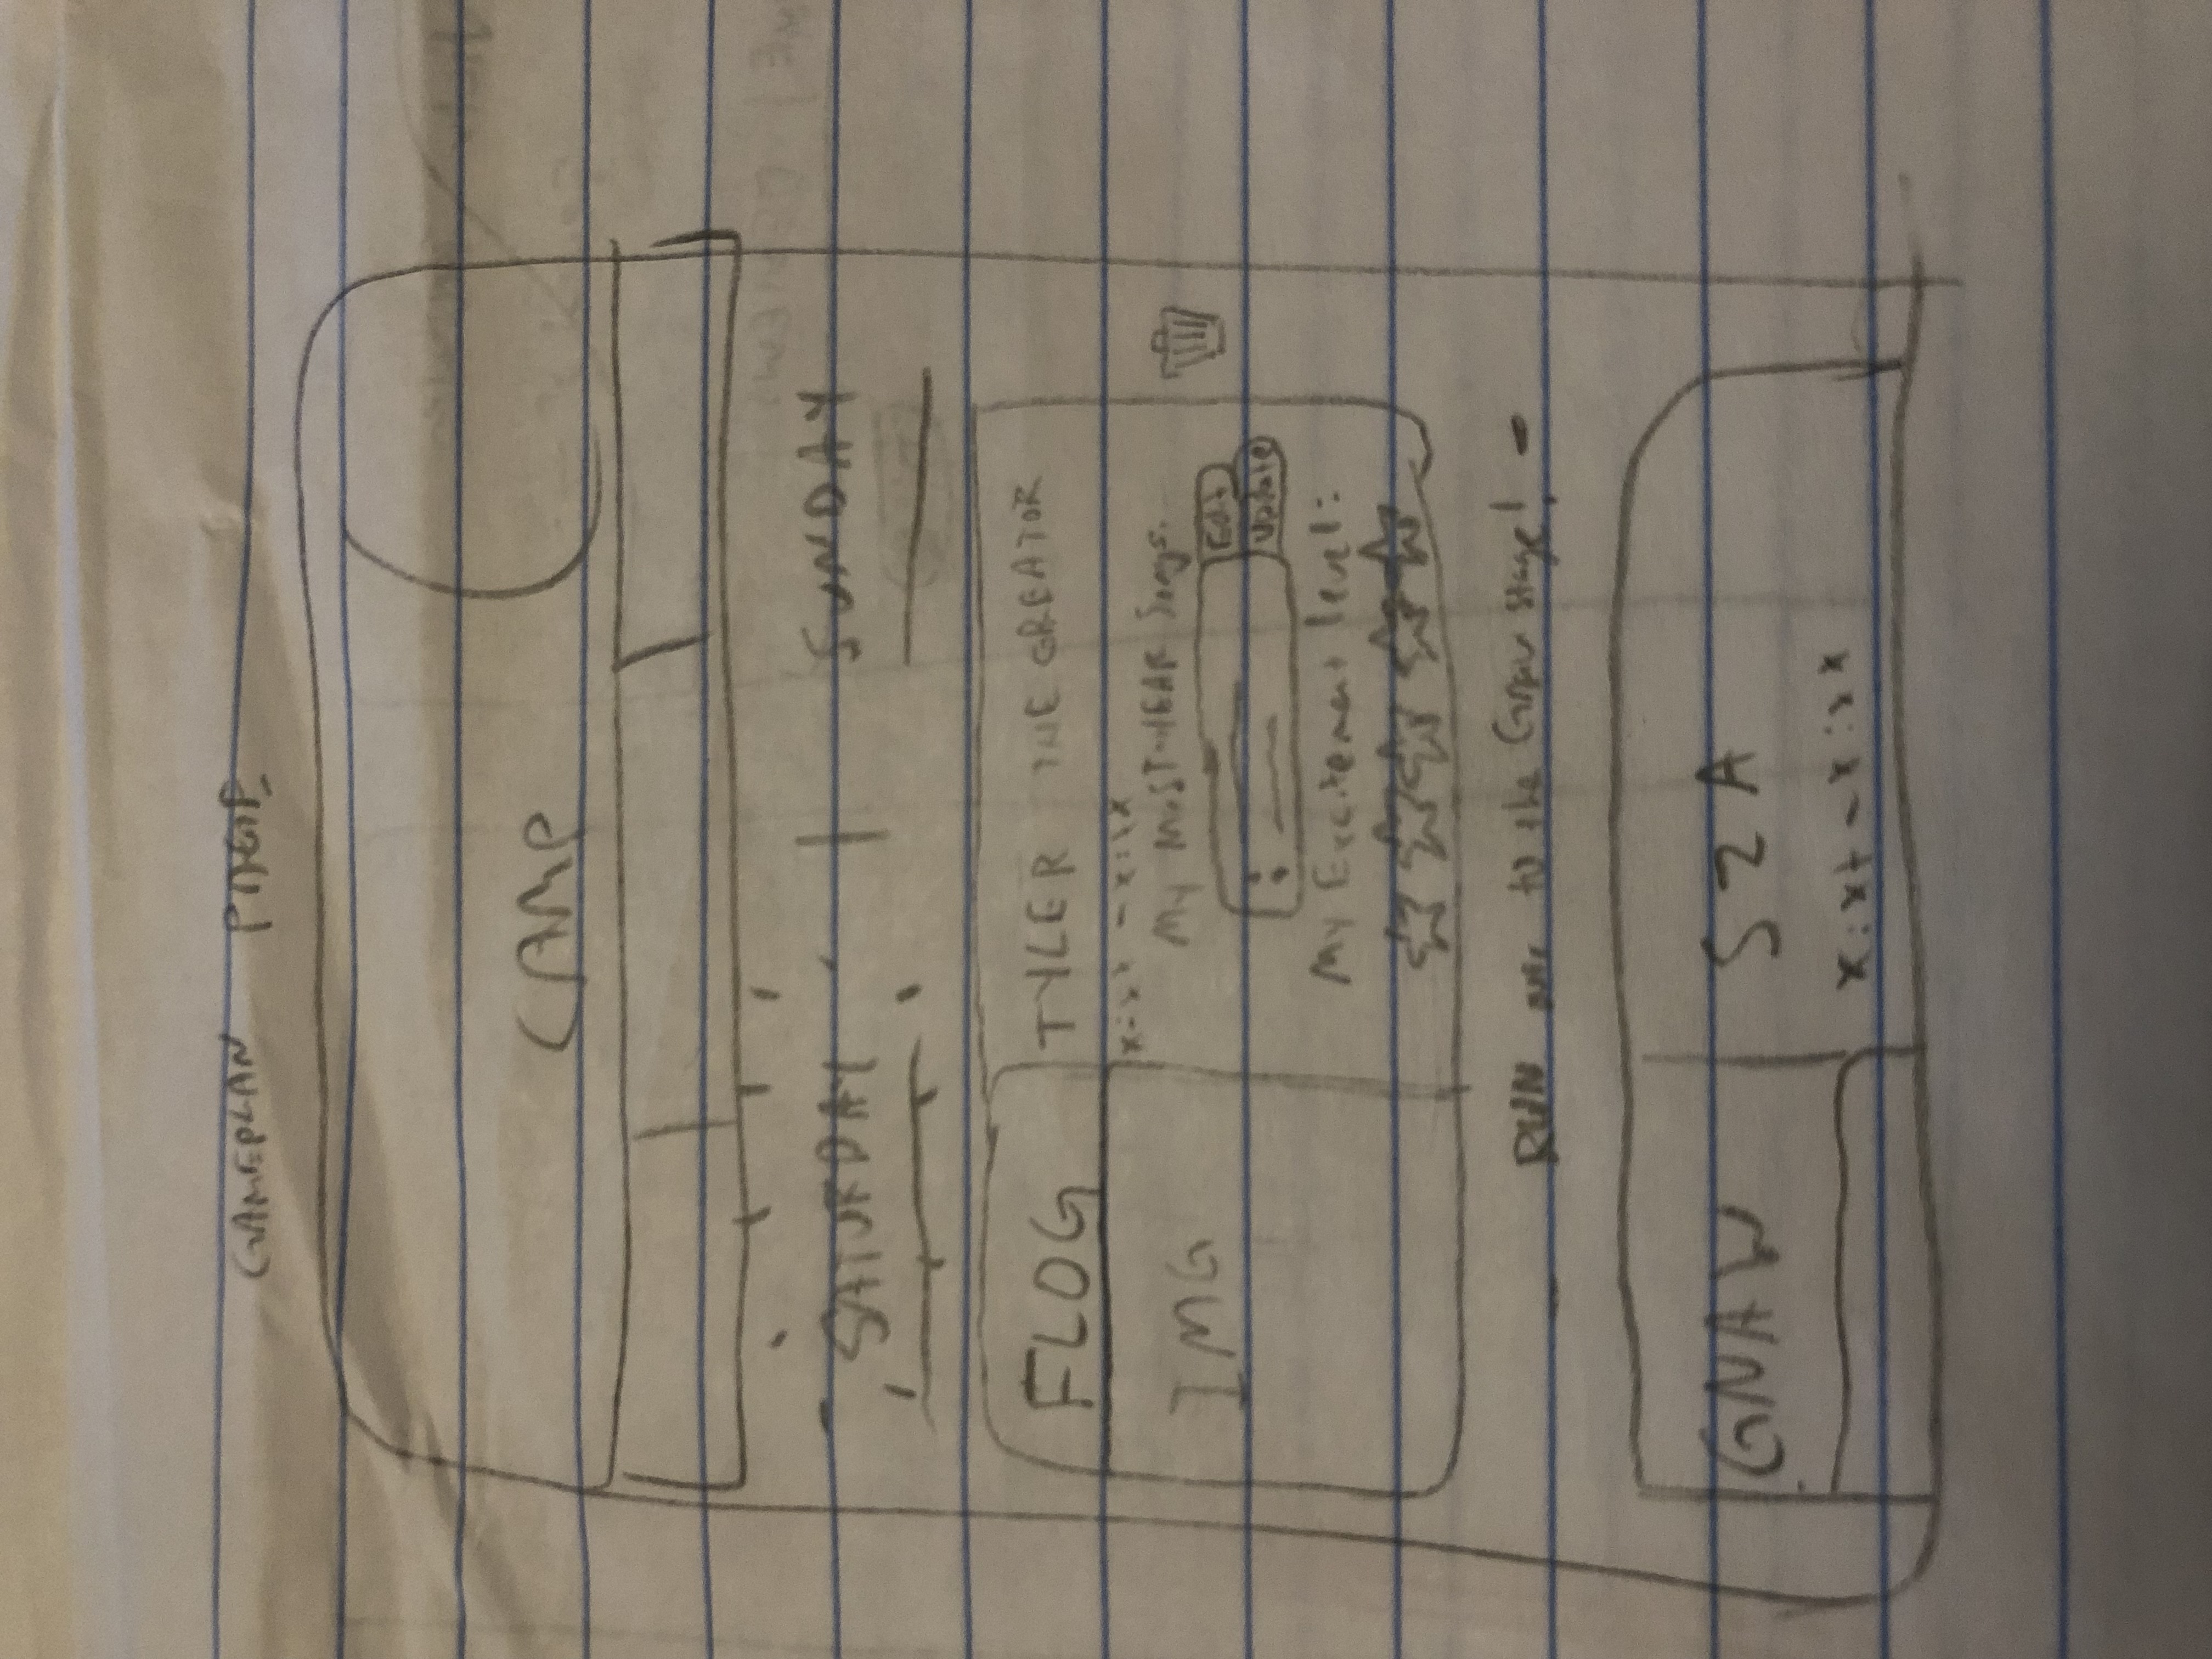 GAMEPLAN PAGE
CAMP
SATURDAY | SUNDAY
FLOG
TYLER THE CREATOR
x:xx - x:xx
My MOST-HEAR Songs.
IMG
Edit
Update
My Excitement level:
- RUN over to the Gnaw stage! -
GNAW
SZA
x:xx - x:xx